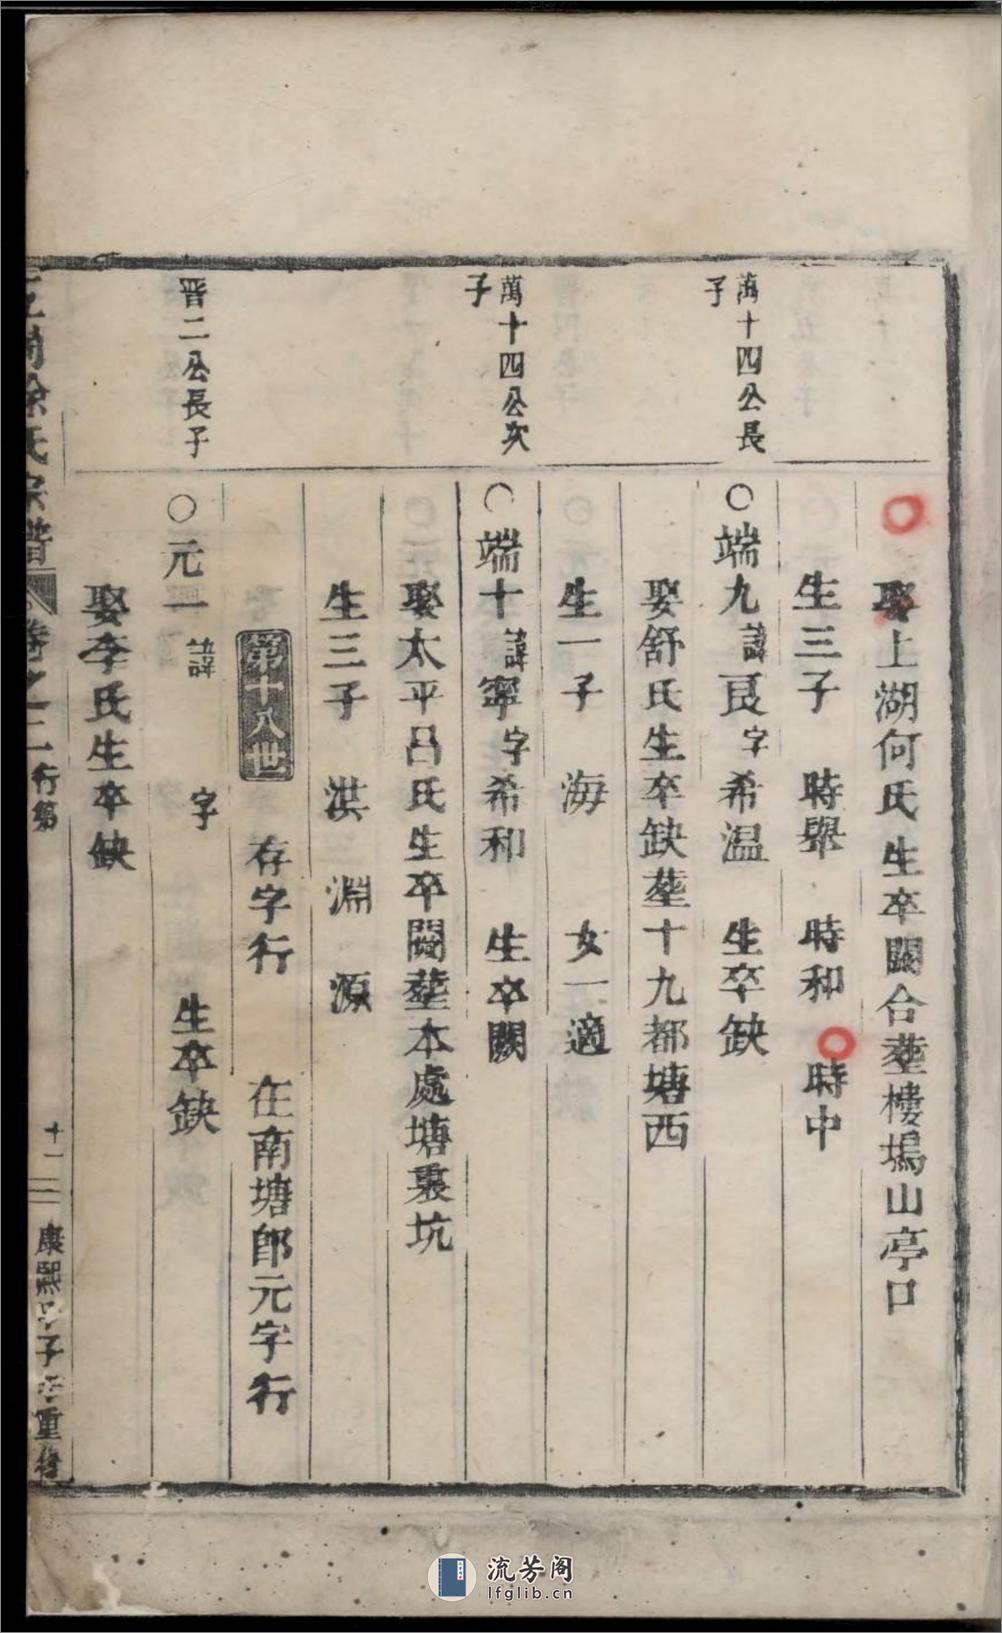 娶上湖何氏生卒闕合塟樓塢山亭口
生三子 時舉 時和 時中
萬十四公長
子
○端九諱艮字希温 生卒缺
娶舒氏生卒缺塟十九都塘西
生一子 海 女一適
萬十四公次
子
○端十諱寧字希和 生卒闕
娶太平呂氏生卒闕塟本處塘裏坑
生三子 洪 淵 源
第十八世 存字行 在南塘卽元字行
晋二公長子
○元一諱 字 生卒缺
娶李氏生卒缺
徐氏宗譜 卷之二 行第
十一 康熙 子 重修
流芳阁
lfglib.cn